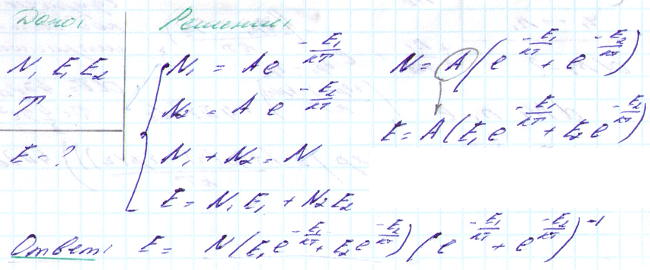 Дано: Решение:
N, E₁ E₂
T
E - ?
N₁ = A e^{-E₁/kT}
N₂ = A e^{-E₂/kT}
N₁ + N₂ = N
E = N₁E₁ + N₂E₂
N = A (e^{-E₁/kT} + e^{-E₂/kT})
E = A (E₁e^{-E₁/kT} + E₂e^{-E₂/kT})
Ответ: E = N (E₁e^{-E₁/kT} + E₂e^{-E₂/kT}) (e^{-E₁/kT} + e^{-E₂/kT})^{-1}